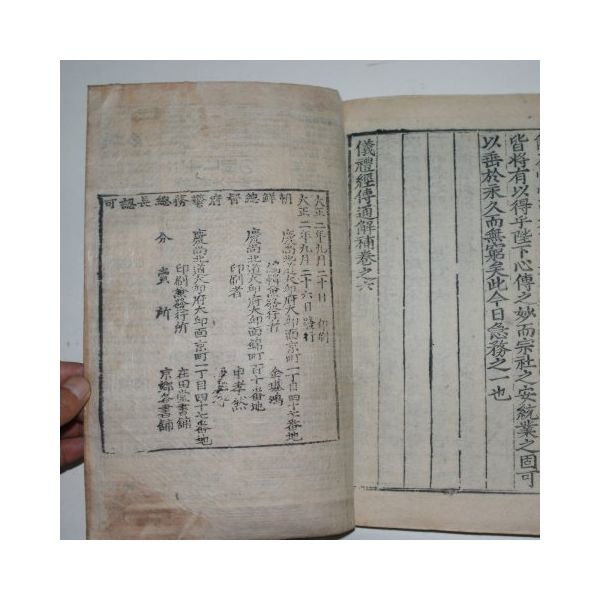 皆將有以得乎陛下心傳之妙而宗社之安統業之固可
以垂於永久而無窮矣此今日急務之一也
儀禮經傳通解補卷之六
朝鮮總督府警務總長認可
大正二年九月二十日 印刷
大正二年九月二十六日 發行
慶尚北道大邱府大邱面京町一丁目四十七番地
編輯兼發行者 金璂鴻
慶尚北道大邱府大邱面錦町百十番地
印刷者 申孝
慶尚北道大邱府大邱面京町一丁目四十七番地
印刷兼發行所 在田堂書鋪
分賣所 京鄉各書鋪